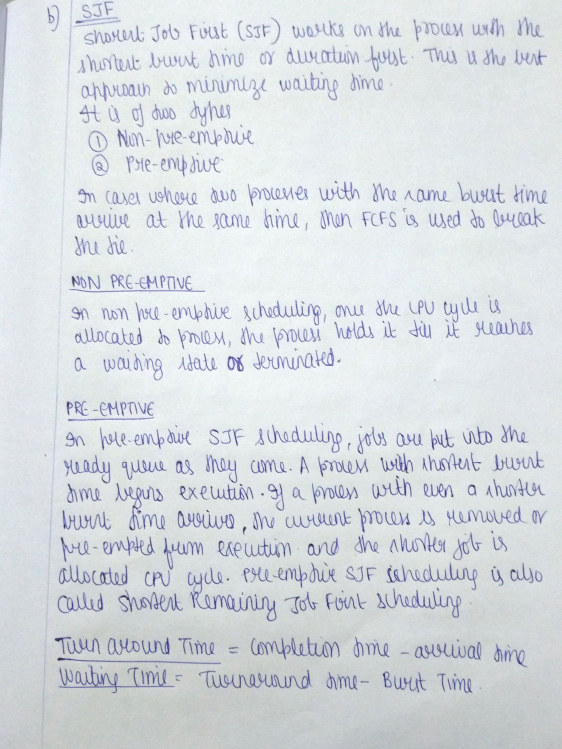 b) SJF
Shortest Job First (SJF) works on the process with the
shortest burst time or duration first. This is the best
approach to minimize waiting time.
It is of two types
① Non-pre-emptive
② Pre-emptive
In cases where two processes with the same burst time
arrive at the same time, then FCFS is used to break
the tie.
NON PRE-EMPTIVE
In non pre-emptive scheduling, once the CPU cycle is
allocated to process, the process holds it till it reaches
a waiting state or terminated.
PRE-EMPTIVE
In pre-emptive SJF scheduling, jobs are put into the
ready queue as they come. A process with shortest burst
time begins execution. If a process with even a shorter
burst time arrives, the current process is removed or
pre-empted from execution and the shorter job is
allocated CPU cycle. Pre-emptive SJF scheduling is also
called Shortest Remaining Job First scheduling.
Turn around Time = Completion time - arrival time
Waiting Time = Turnaround time - Burst Time.